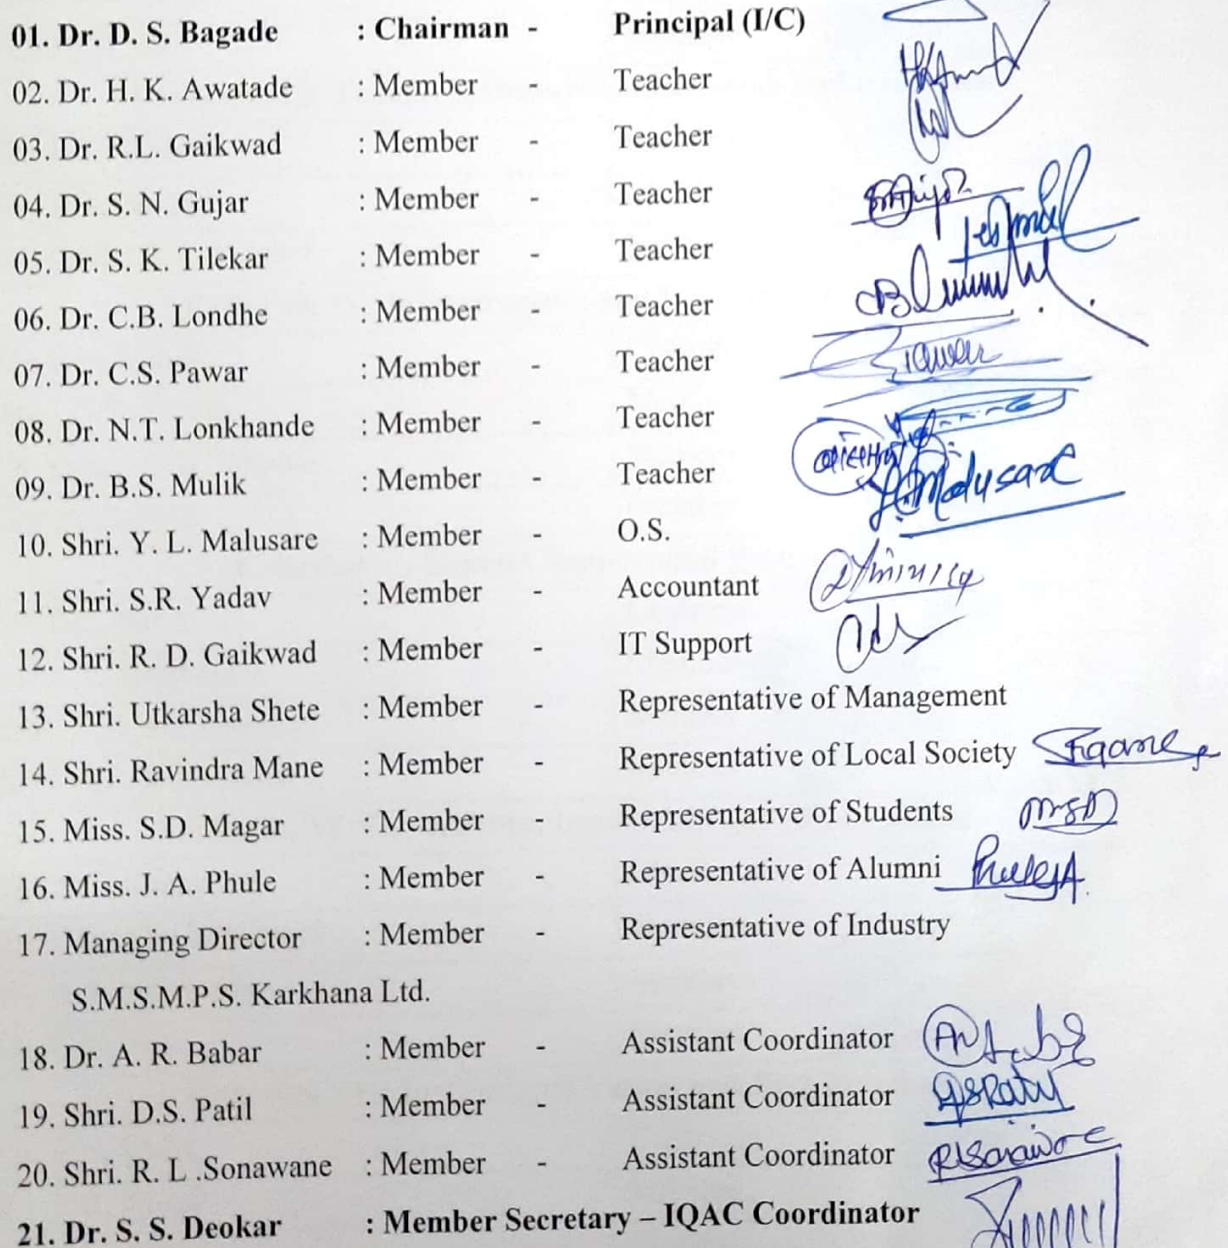 01. Dr. D. S. Bagade : Chairman - Principal (I/C)
02. Dr. H. K. Awatade : Member - Teacher
03. Dr. R.L. Gaikwad : Member - Teacher
04. Dr. S. N. Gujar : Member - Teacher
05. Dr. S. K. Tilekar : Member - Teacher
06. Dr. C.B. Londhe : Member - Teacher
07. Dr. C.S. Pawar : Member - Teacher
08. Dr. N.T. Lonkhande : Member - Teacher
09. Dr. B.S. Mulik : Member - Teacher
10. Shri. Y. L. Malusare : Member - O.S.
11. Shri. S.R. Yadav : Member - Accountant
12. Shri. R. D. Gaikwad : Member - IT Support
13. Shri. Utkarsha Shete : Member - Representative of Management
14. Shri. Ravindra Mane : Member - Representative of Local Society
15. Miss. S.D. Magar : Member - Representative of Students
16. Miss. J. A. Phule : Member - Representative of Alumni
17. Managing Director : Member - Representative of Industry
S.M.S.M.P.S. Karkhana Ltd.
18. Dr. A. R. Babar : Member - Assistant Coordinator
19. Shri. D.S. Patil : Member - Assistant Coordinator
20. Shri. R. L .Sonawane : Member - Assistant Coordinator
21. Dr. S. S. Deokar : Member Secretary – IQAC Coordinator